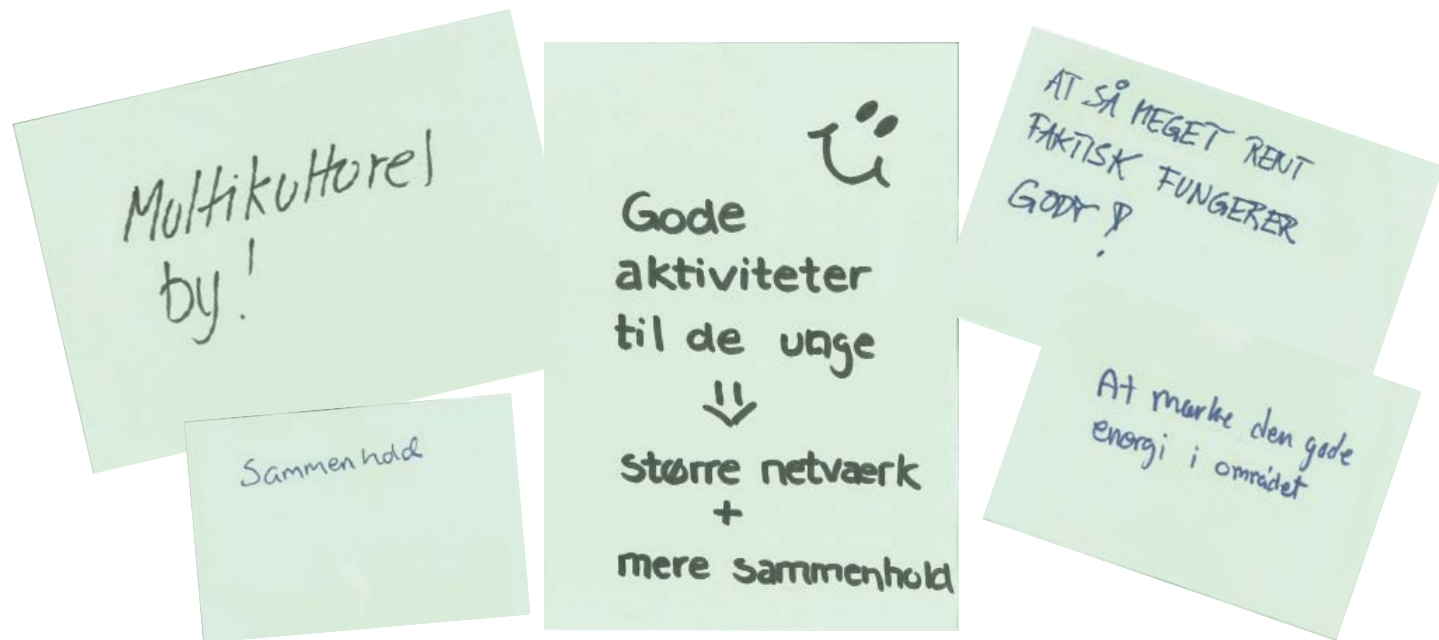 Multikulturel
by!
Sammenhold
Gode
aktiviteter
til de unge
⇓
større netværk
+
mere sammenhold
AT SÅ MEGET RENT
FAKTISK FUNGERER
GODT!
At mærke den gode
energi i området